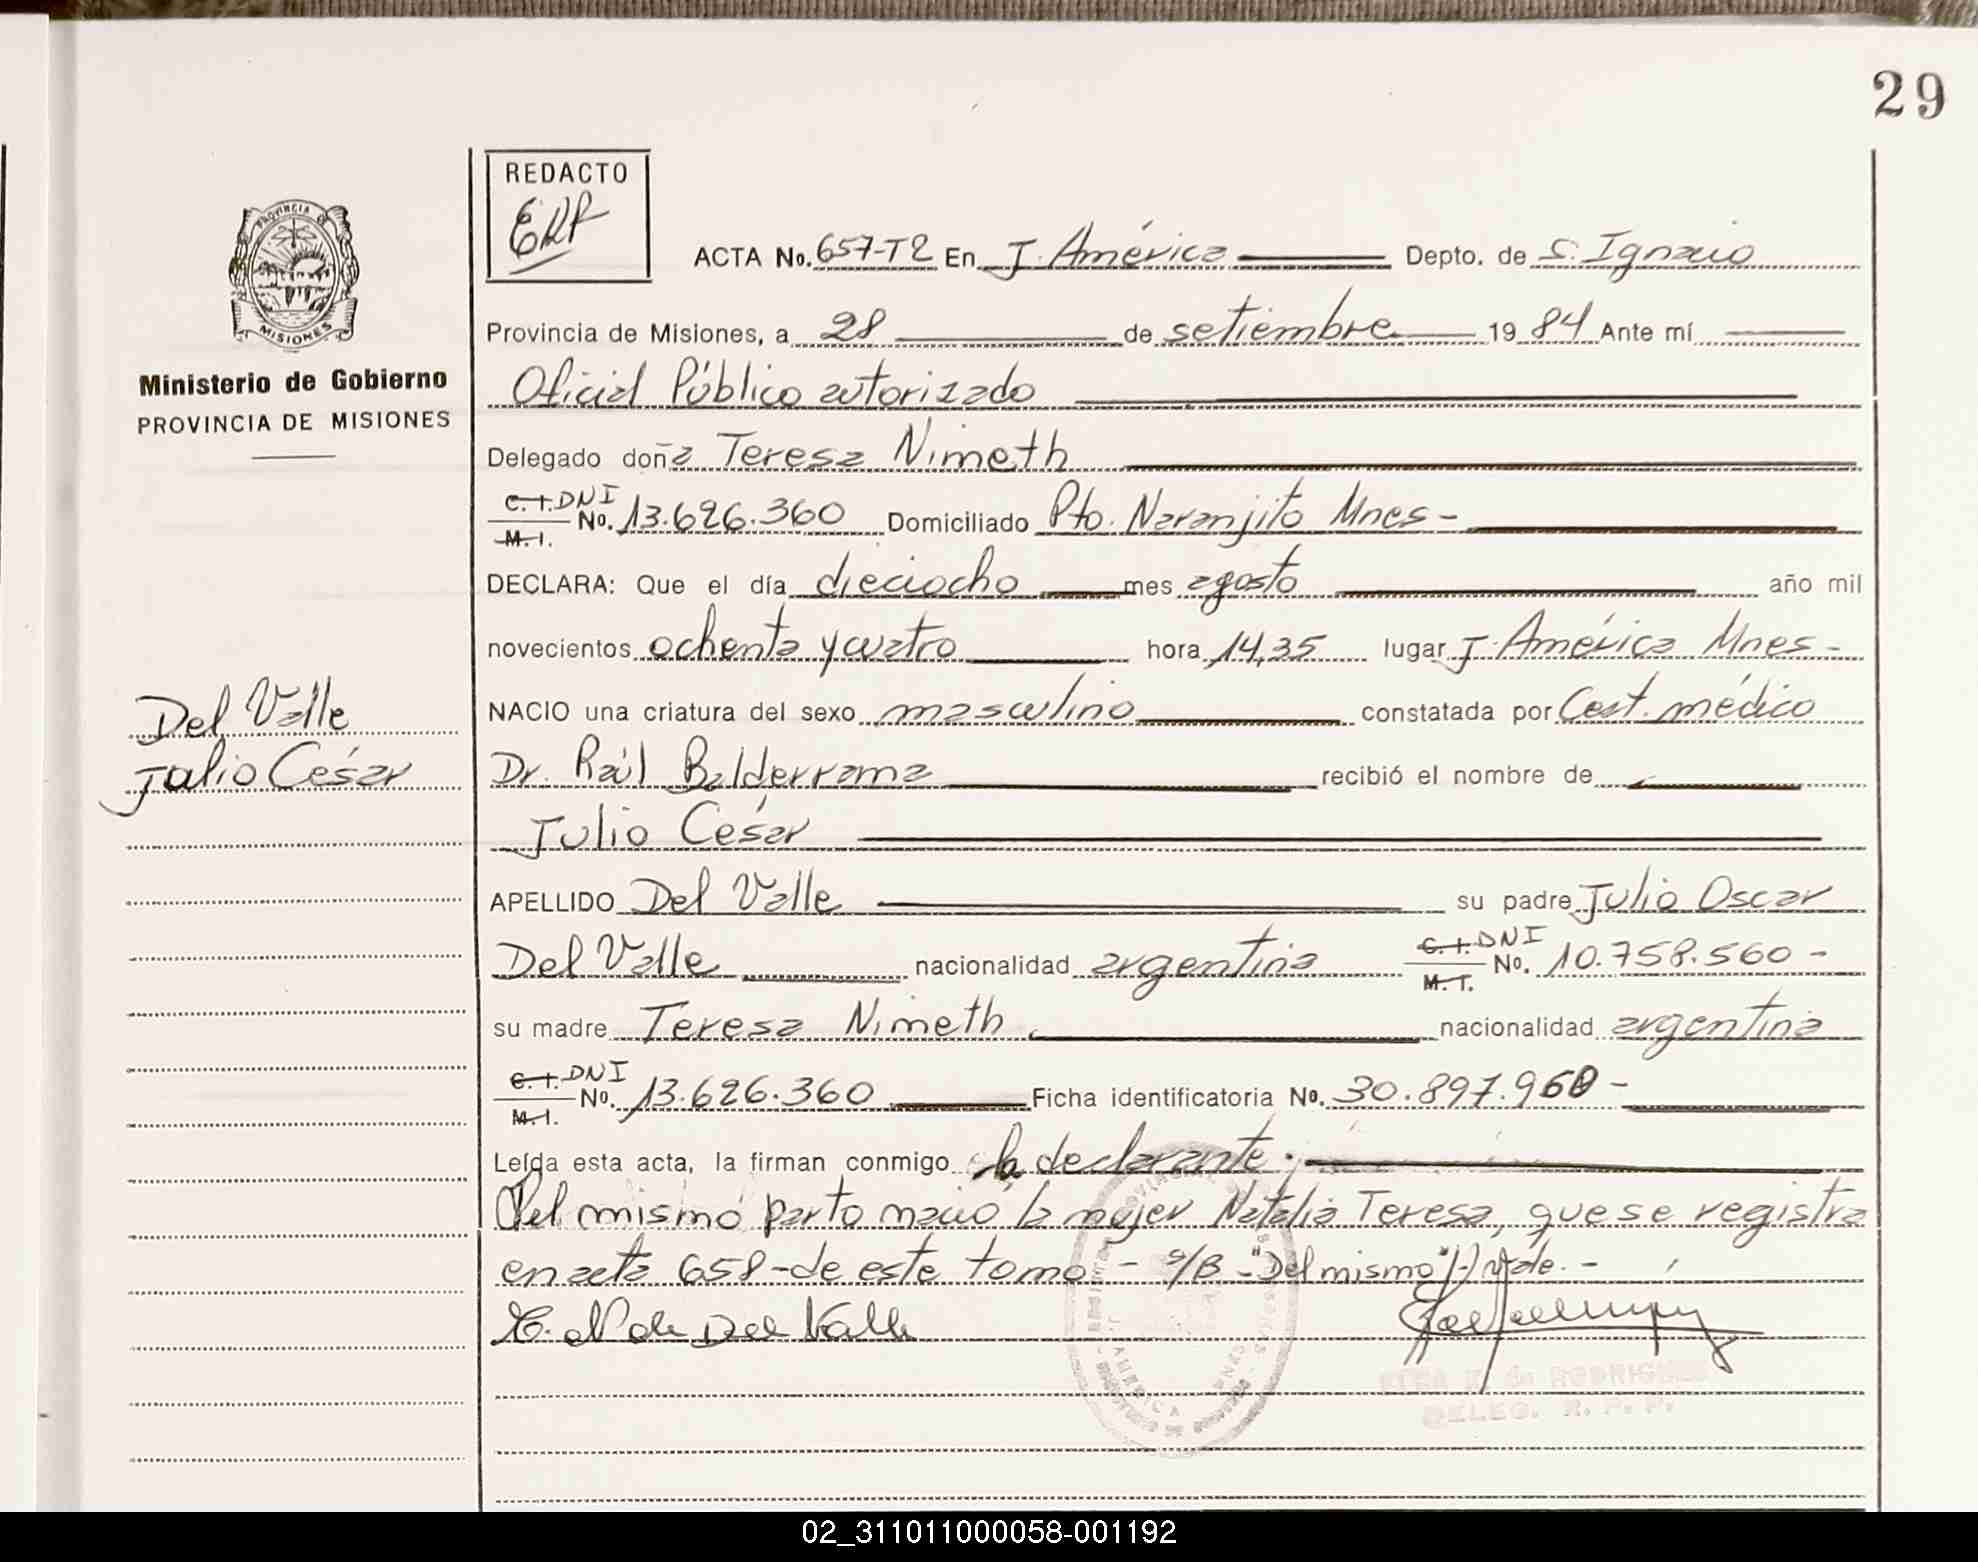 29
REDACTO
ERP
PROVINCIA DE
MISIONES
Ministerio de Gobierno
PROVINCIA DE MISIONES
ACTA No. 657-T2 En J. América Depto. de S. Ignacio
Provincia de Misiones, a 28 de setiembre 1984 Ante mí
Oficial Público autorizado
Delegado doña Teresa Nimeth
C. I. DNI
M. I. No. 13.626.360 Domiciliado Pto. Naranjito Mnes-
DECLARA: Que el día dieciocho mes agosto año mil
novecientos ochenta y cuatro hora 14,35 lugar J. América Mnes-
Del Valle
Julio César
NACIO una criatura del sexo masculino constatada por Cert. médico
Dr. Raúl Balderrama recibió el nombre de
Julio César
APELLIDO Del Valle su padre Julio Oscar
Del Valle nacionalidad argentina C. I. DNI M. I. No. 10.758.560-
su madre Teresa Nimeth nacionalidad argentina
C. I. DNI
M. I. No. 13.626.360 Ficha identificatoria No. 30.897.960-
Leída esta acta, la firman conmigo la declarante.
Del mismo parto nació la mujer Natalia Teresa, que se registra
en acta 658-de este tomo- s/B-"Del mismo"/-/ Vale.-
T. N de Del Valle
AMERICA
DE RODRIGUEZ
DELEG. R. P. P.
02_311011000058-001192